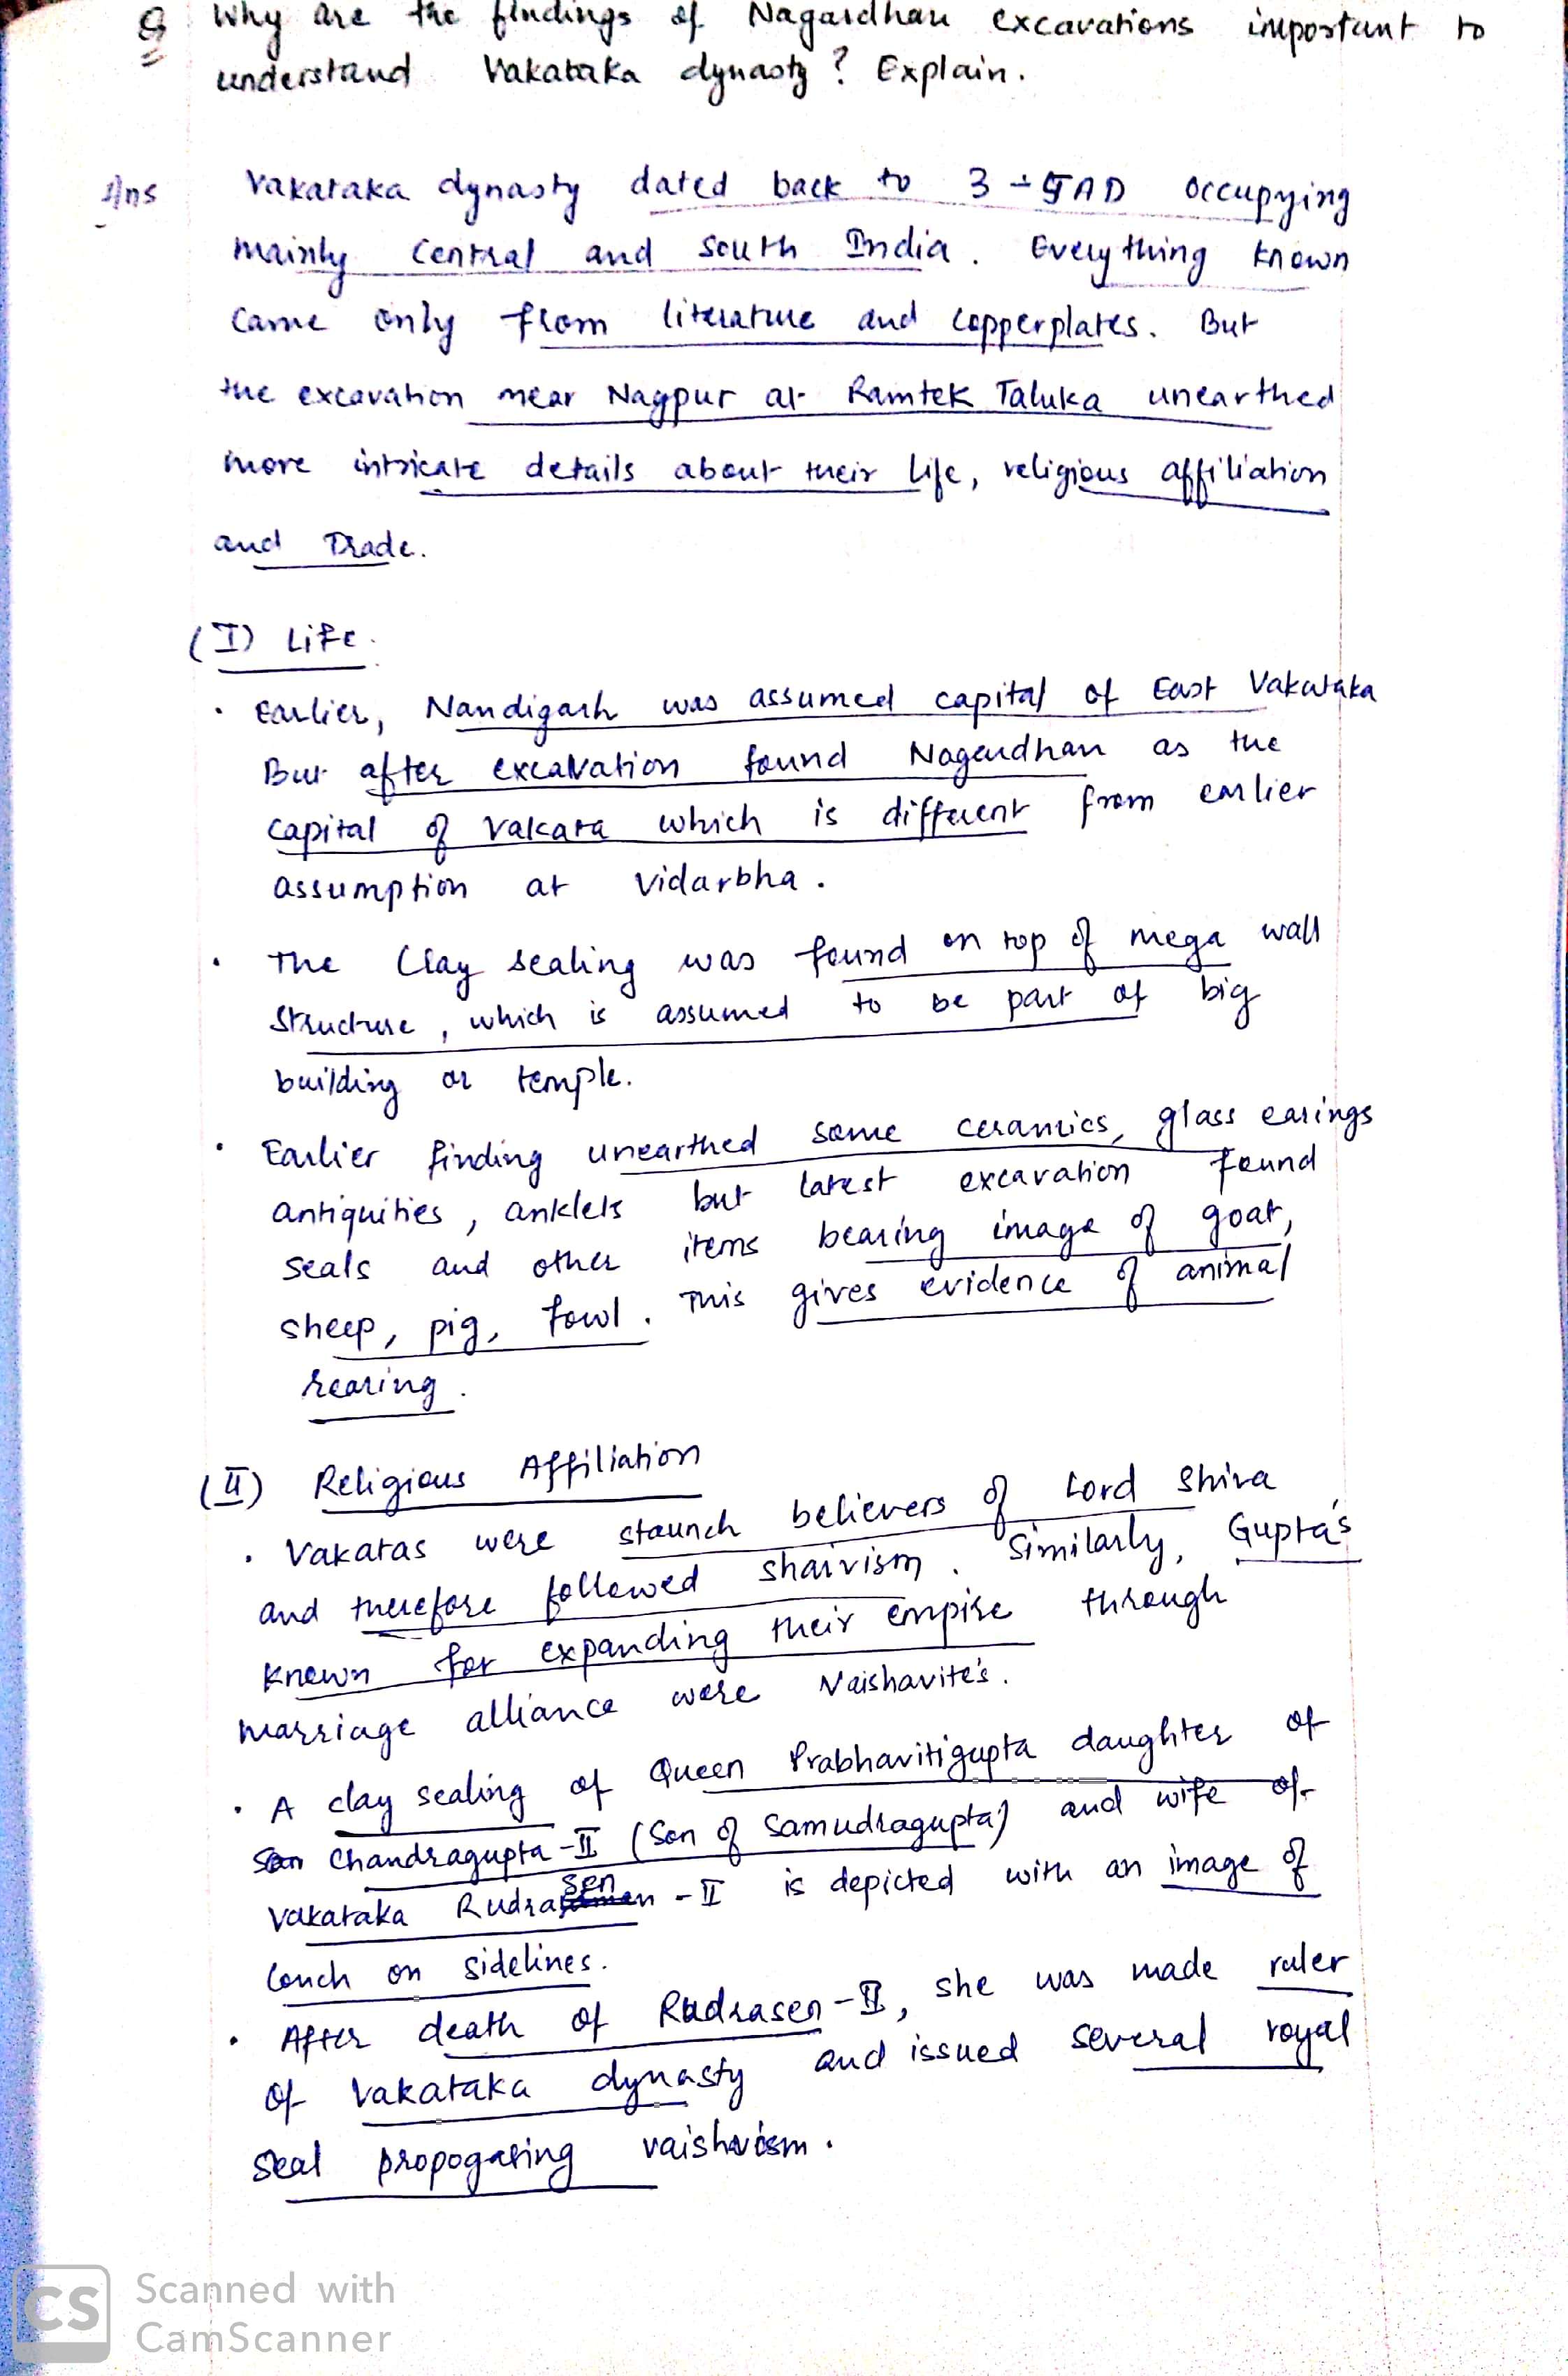 Q Why are the findings of Nagardhan excavations important to
understand Vakataka dynasty ? Explain.
Ans Vakataka dynasty dated back to 3 - 5 AD occupying
mainly central and south India. Everything known
came only from literature and copperplates. But
the excavation near Nagpur at Ramtek Taluka unearthed
more intricate details about their life, religious affiliation
and Trade.
(I) Life.
• Earlier, Nandigarh was assumed capital of East Vakataka
But after excavation found Nagardhan as the
capital of Vakata which is different from earlier
assumption at Vidarbha.
• The Clay sealing was found on top of mega wall
structure, which is assumed to be part of big
building or temple.
• Earlier finding unearthed some ceramics, glass earings
antiquities, anklets but latest excavation found
seals and other items bearing image of goat,
sheep, pig, fowl. This gives evidence of animal
rearing.
(II) Religious Affiliation
• Vakatas were staunch believers of Lord Shiva
and therefore followed shaivism. Similarly, Gupta's
known for expanding their empire through
marriage alliance were Vaishavite's.
• A clay sealing of Queen Prabhavitigupta daughter of
Chandragupta-II (Son of Samudragupta) and wife of
Vakataka Rudrasen-II is depicted with an image of
Conch on sidelines.
• After death of Rudrasen-II, she was made ruler
of Vakataka dynasty and issued several royal
seal propogating vaishavism.
CS Scanned with
CamScanner